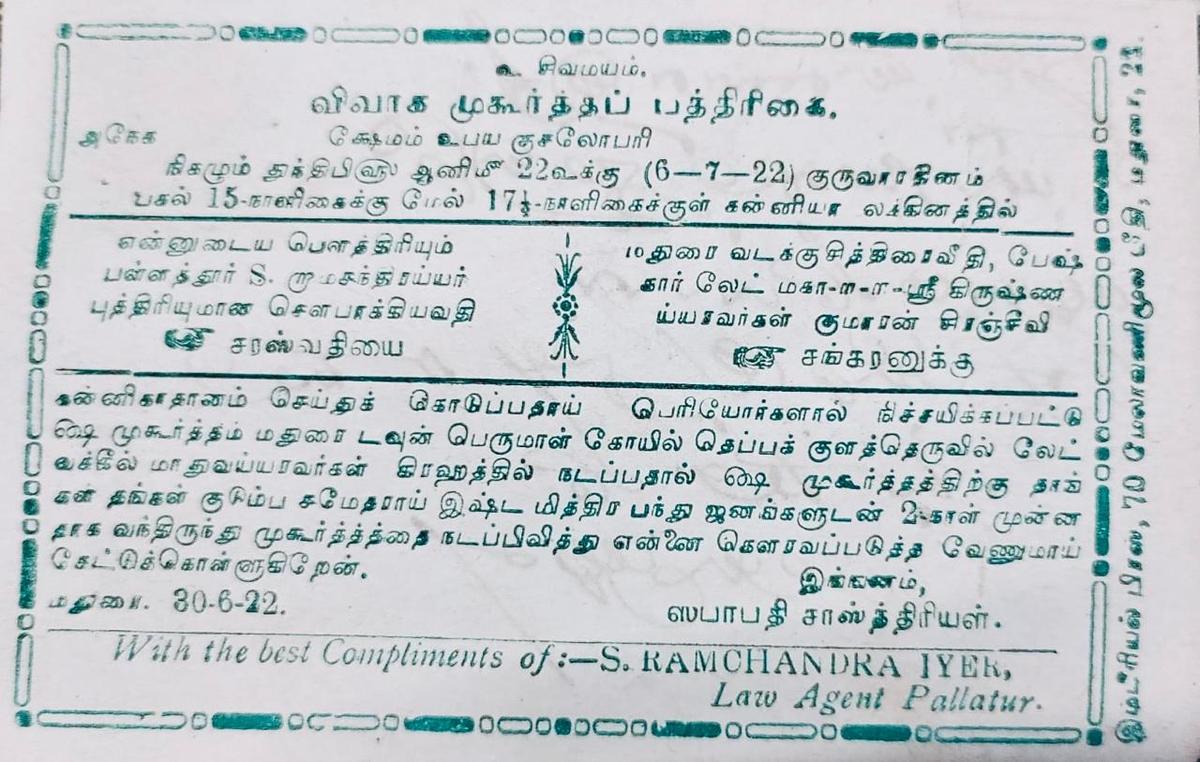 உ சிவமயம்.
விவாக முகூர்த்தப் பத்திரிகை.
அகேக க்ஷேமம் உபய குசலோபரி
நிகமும் துந்துபிளு ஆனிமீ 22உக்கு (6—7—22) குருவாரதினம்
பகல் 15-நாளிகைக்கு மேல் 17½-நாளிகைக்குள் கன்னியா லக்கினத்தில்
என்னுடைய பௌத்திரியும்
பள்ளத்தூர் S. ராமசந்திரய்யர்
புத்திரியுமான சௌபாக்கியவதி
சரஸ்வதியை
மதுரை வடக்குசித்திரைவீதி, பேஷ்
கார் லேட் மகா-ா-ா-ஸ்ரீ கிருஷ்ண
ய்யரவர்கள் குமாரன் சிரஞ்சீவி
சங்கரனுக்கு
கன்னிகாதானம் செய்துக் கொடுப்பதாய் பெரியோர்களால் நிச்சயிக்கப்பட்டு
ஷை முகூர்த்தம் மதுரை டவுன் பெருமாள் கோயில் தெப்பக் குளத்தெருவில் லேட்
வக்கீல் மாதுவய்யரவர்கள் கிரஹத்தில் நடப்பதால் ஷை முகூர்த்தத்திற்கு தாங்
கள் தங்கள் குடும்ப சமேதராய் இஷ்ட மித்திர பந்து ஜனங்களுடன் 2-நாள் முன்ன
தாக வந்திருந்து முகூர்த்த்தத்தை நடப்பிவித்து என்னை கௌரவப்படுத்த வேணுமாய்
கேட்டுக்கொள்ளுகிறேன்.
இங்கனம்,
மதுரை. 30-6-22.
ஸபாபதி சாஸ்த்திரியள்.
With the best Compliments of :—S. RAMCHANDRA IYER,
Law Agent Pallatur.
பிரஸ், 70 மேலாவணிமூல வீதி, மதுரை, 22.